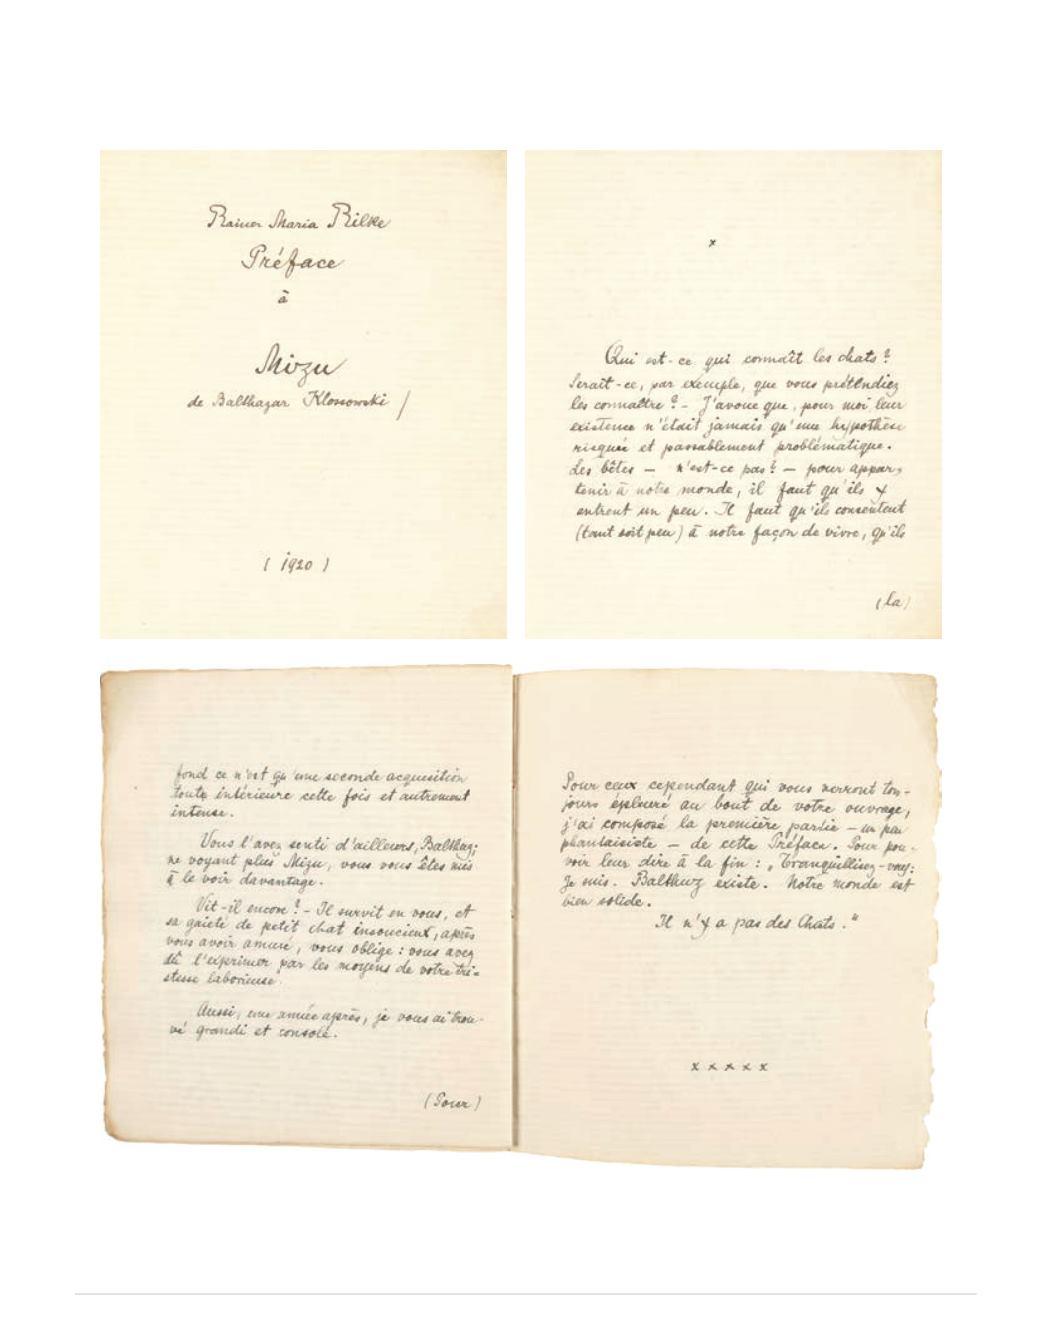 Rainer Maria Rilke
Préface
à
Mizu
de Balthazar Klossowski /
( 1920 )
x
Qui est-ce qui connaît les chats ?
Serait-ce, par exemple, que vous prétendiez
les connaître ? - J'avoue que, pour moi leur
existence n'était jamais qu'une hypothèse
risquée et passablement problématique.
Les bêtes — n'est-ce pas ? — pour appar-
tenir à notre monde, il faut qu'ils y
entrent un peu. Il faut qu'ils consentent
(tant soit peu) à notre façon de vivre, qu'ils
(la)
fond ce n'est qu'une seconde acquisition
toute intérieure cette fois et autrement
intense.
Vous l'avez senti d'ailleurs, Balthuz;
ne voyant plus Mizu, vous vous êtes mis
à le voir davantage.
Vit-il encore ? - Il survit en vous, et
sa gaieté de petit chat insoucieux, après
vous avoir amusé, vous oblige : vous avez
dû l'exprimer par les moyens de votre tri-
stesse laborieuse.
Aussi, une année après, je vous ai trou-
vé grandi et consolé.
(Pour)
Pour ceux cependant qui vous verront tou-
jours éploré au bout de votre ouvrage,
j'ai composé la première partie — un peu
phantaisiste — de cette Préface. Pour pou-
voir leur dire à la fin : „Tranquillisez-vous:
Je suis. Balthuz existe. Notre monde est
bien solide.
Il n'y a pas des Chats."
x x x x x